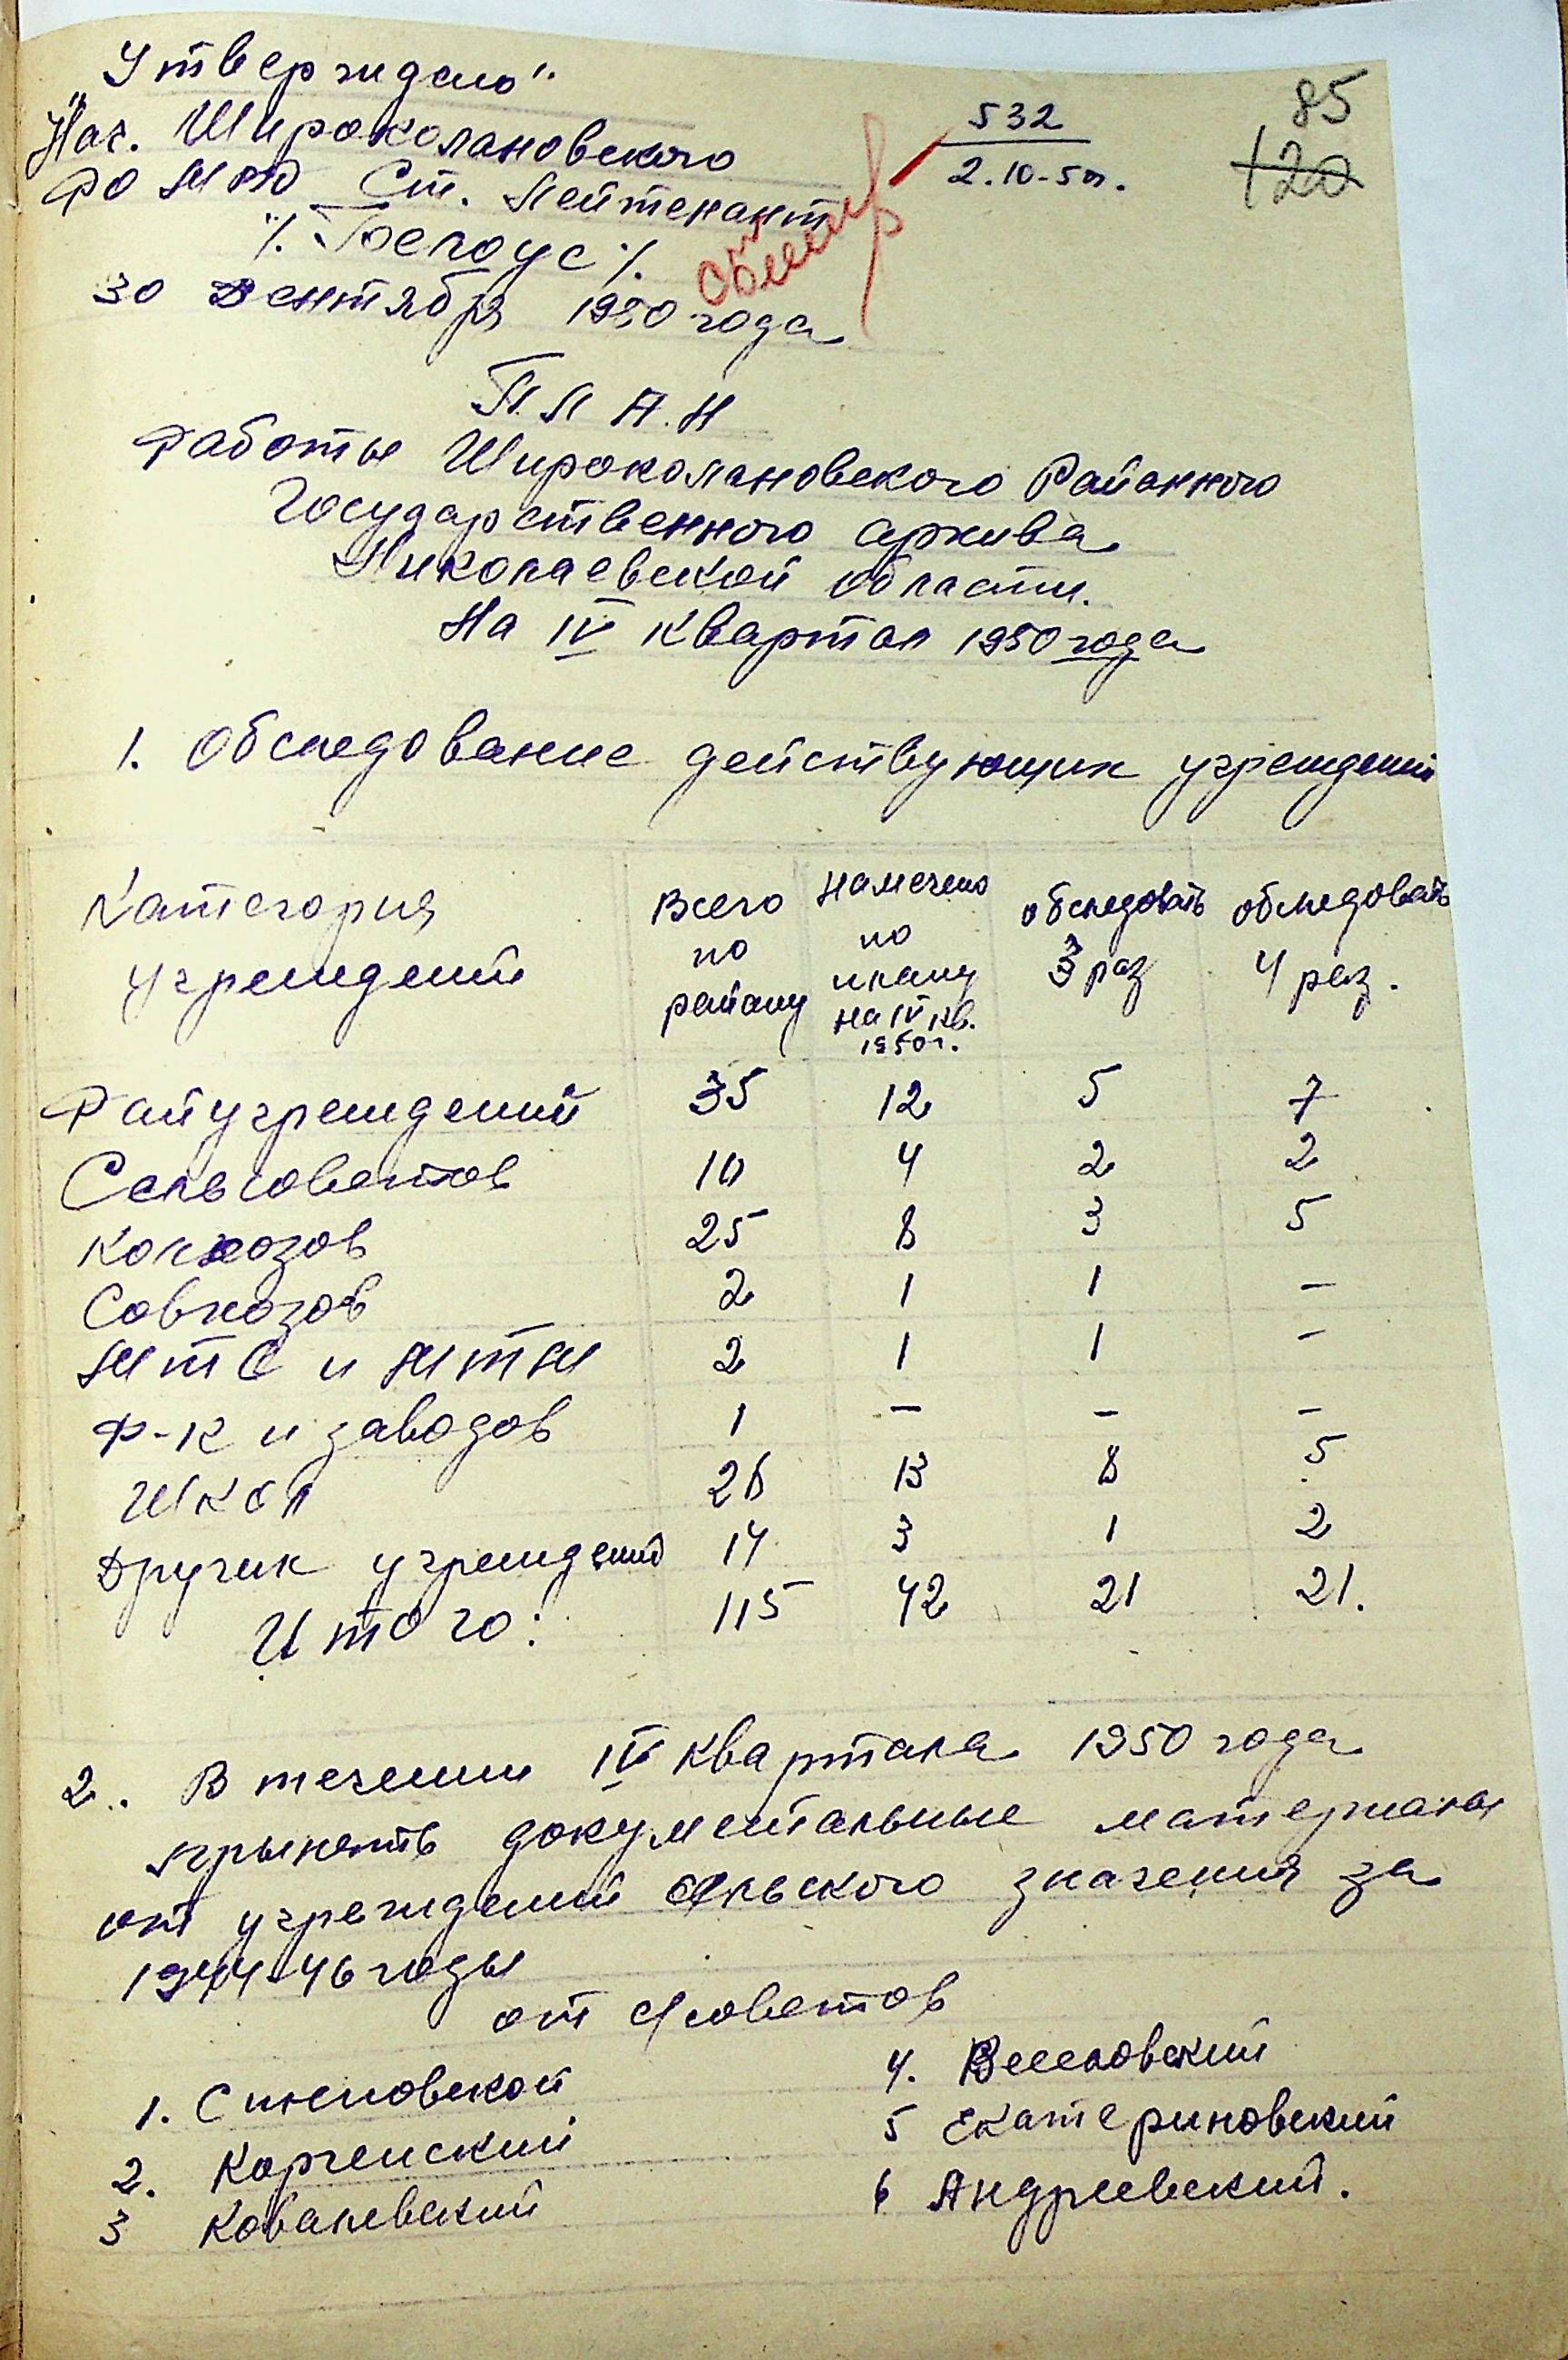 „Утверждаю"
Нач. Широколановского
РО МГБ Ст. Лейтенант
/. Белоус ./.
30 Сентября 1950 года
532
2.10-50г.
85
120
П Л А Н
Работы Широколановского Районного
Государственного архива
Николаевской области.
На IV квартал 1950 года
1. Обследование действующих учреждений
Категория учреждений | Всего по району | Намечено по плану на IV кв. 1950г. | обследовать 3 раз | обследовать 4 раз.
Райучреждений 35 12 5 7
Сельсоветов 10 4 2 2
Колхозов 25 8 3 5
Совхозов 2 1 1 –
МТС и МТМ 2 1 1 –
Ф-к и заводов 1 – – –
Школ 26 13 8 5
Других учреждений 14 3 1 2
Итого: 115 42 21 21.
2. В течении IV квартала 1950 года
принять документальные материалы
от учреждений сельского значения за
1944-46 годы
от с/советов
1. Степовской
2. Корченский
3 Ковалевский
4. Веселовский
5 Екатериновский
6 Андреевский.